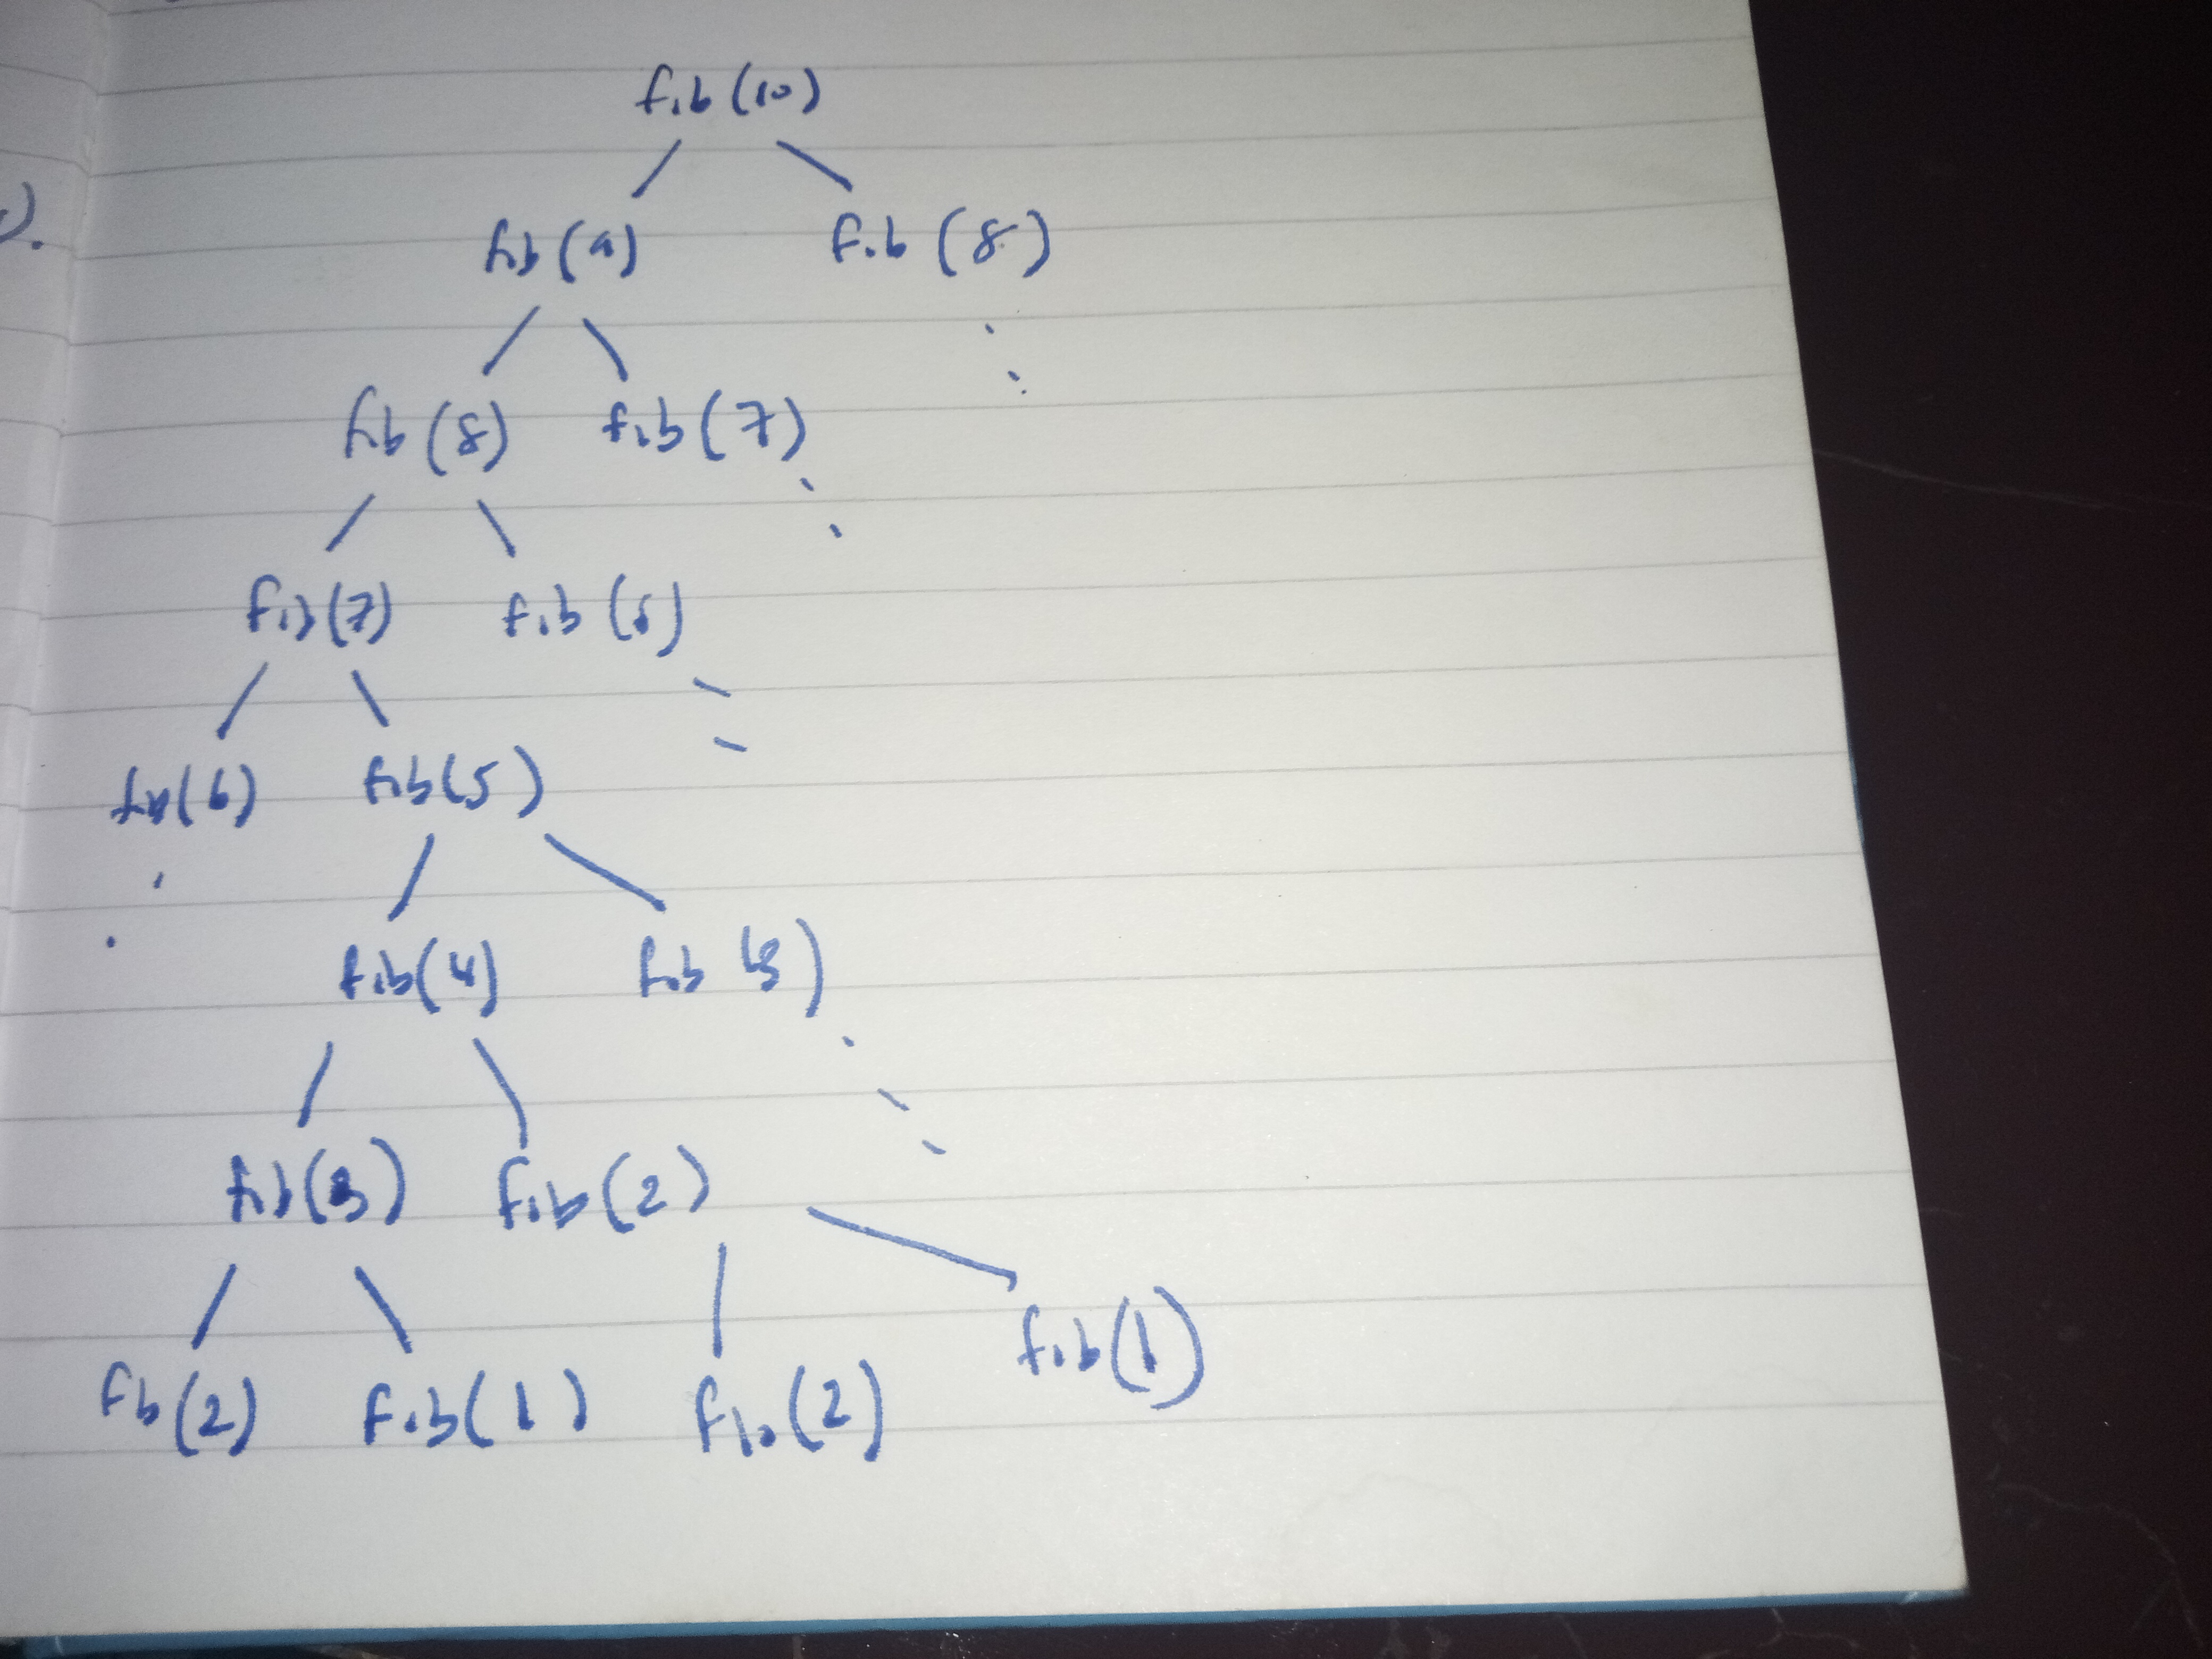 ).
fib(10)
fib(9) fib(8)
fib(8) fib(7)
fib(7) fib(6)
fib(6) fib(5)
fib(4) fib(3)
fib(3) fib(2)
fib(1)
fb(2) fib(1) fib(2)